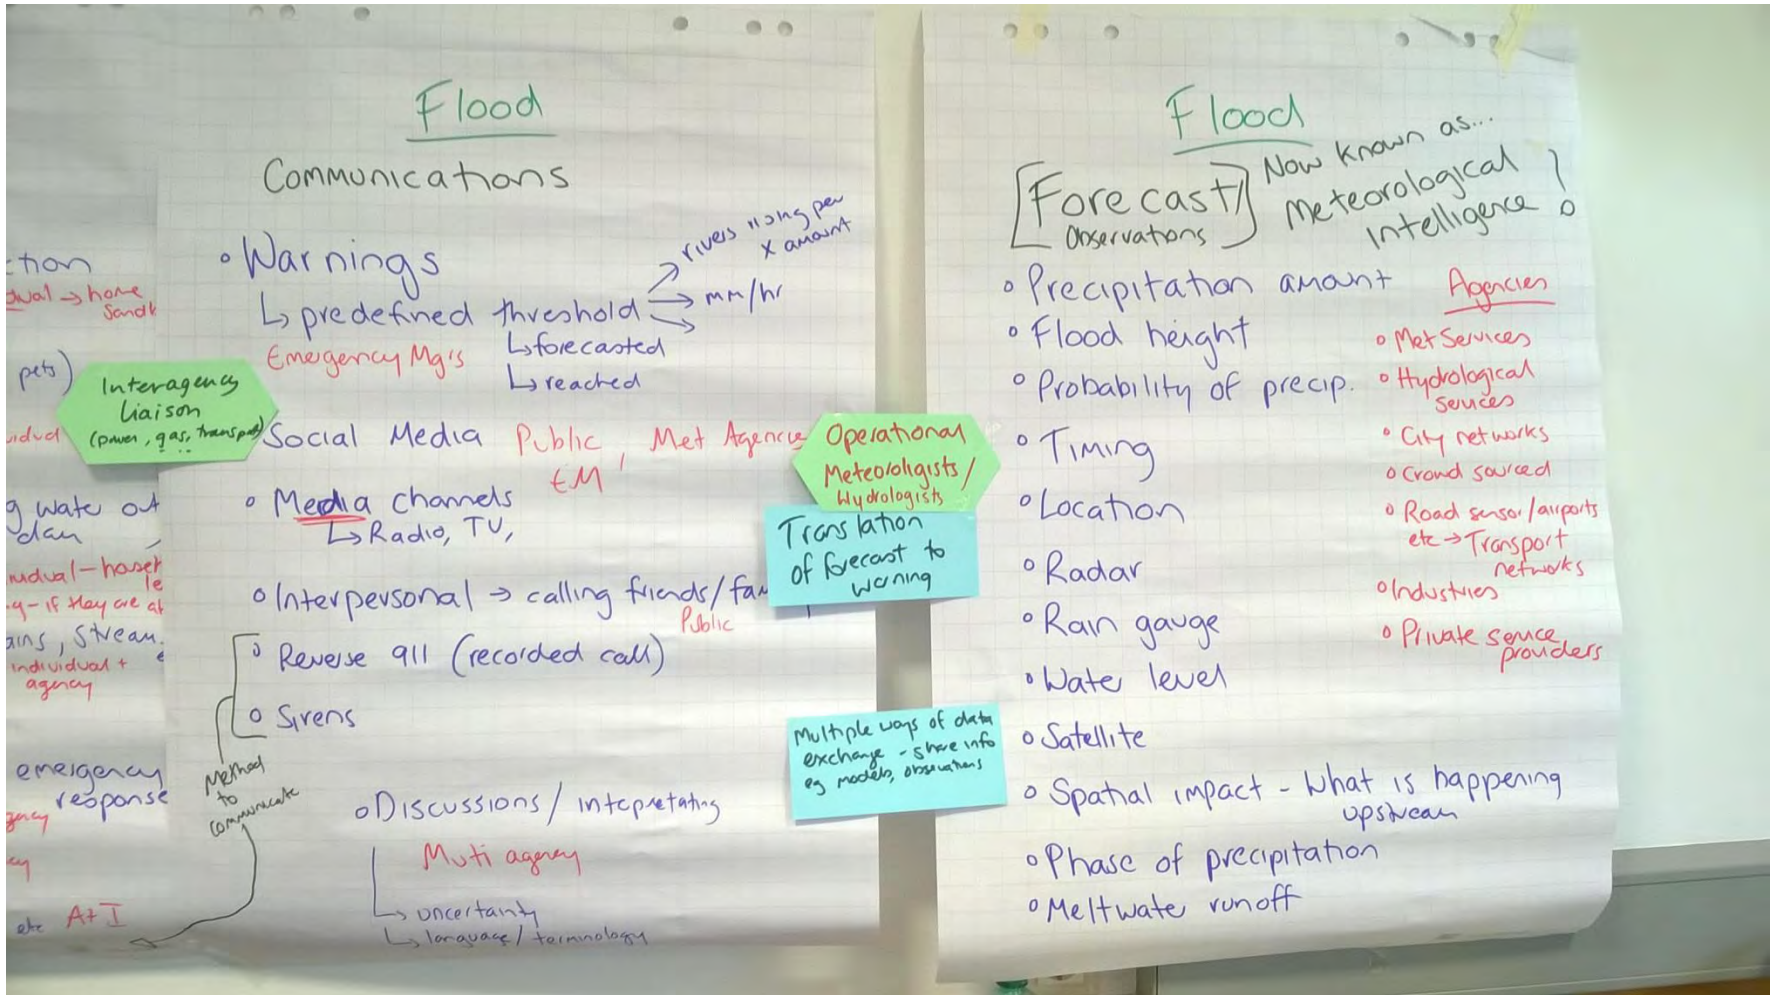 ction
dual → home
pets)
g wate out
emergency
response
etc A+I
individual +
agency
Interagency
Liaison
(power, gas, transport)
Flood
Communications
Warnings
↳ predefined threshold
rivers rising per
x amount
mm/hr
↳ forecasted
↳ reached
Emergency Mg's
Social Media Public, Met Agencie
EM
Media channels
↳ Radio, TV,
Interpersonal → calling friends/fam
Public
Reverse 911 (recorded call)
Sirens
Method
to
communicate
Discussions/
Muti agency
↳ uncertainty
↳ language/terminology
Operational
Meteoroligists/
Hydrologists
Translation
of forecast to
warning
Multiple ways of data
exchange - share info
eg models, observations
Flood
[Forecast/
Observations]
Now known as...
Meteorological
Intelligence!
Precipitation amount
Flood height
Probability of precip.
Timing
Location
Radar
Rain gauge
Water level
Satellite
Spatial impact - What is happening
upstream
Phase of precipitation
Meltwate runoff
Agencies
Met Services
Hydrological
services
City networks
Crowd sourced
Road sensor/airports
etc → Transport
networks
Industries
Private service
providers